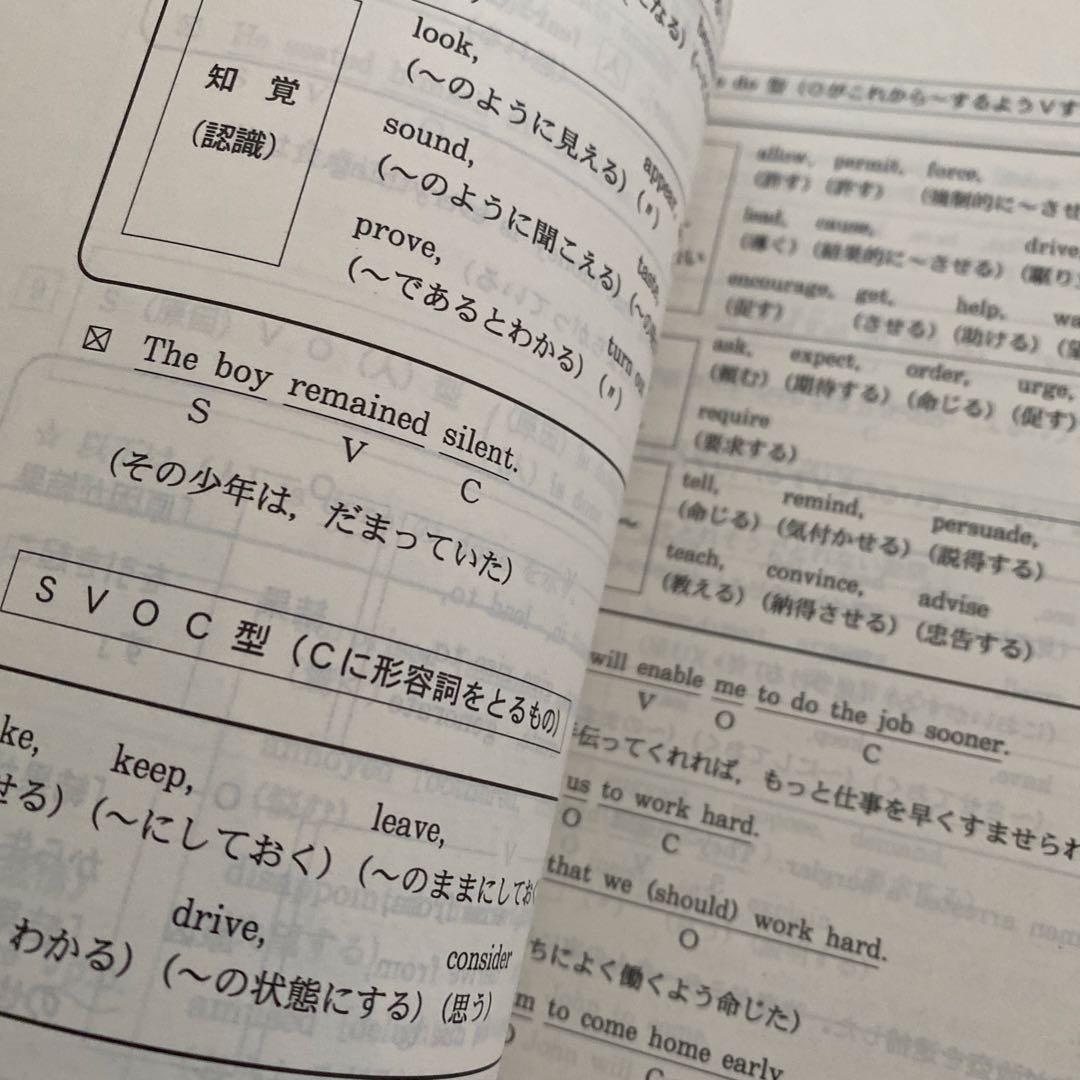 くなる)
look,
知 覚
(認識)
(〜のように見える)
appear,
(〃)
sound,
(〜のように聞こえる)
taste,
prove,
(〜であるとわかる)
turn out
(〃)
The boy remained silent.
S V C
(その少年は，だまっていた)
S V O C 型 (Cに形容詞をとるもの)
ke, keep, leave,
せる) (〜にしておく) (〜のままにしてお
drive, consider
わかる) (〜の状態にする) (思う)
do 型 (Oがこれから〜するようVす
allow, permit, force,
(許す) (許す) (強制的に〜させ
lead, cause, drive,
(導く) (結果的に〜させる) (駆り
encourage, get, help, wa
(促す) (させる) (助ける) (望
ask, expect, order, urge,
(頼む) (期待する) (命じる) (促す)
require
(要求する)
tell, remind, persuade,
(命じる) (気付かせる) (説得する)
teach, convince, advise
(教える) (納得させる) (忠告する)
will enable me to do the job sooner.
V O C
手伝ってくれれば，もっと仕事を早くすませられ
us to work hard.
O C
that we (should) work hard.
O
ちによく働くよう命じた)
m to come home early
O C